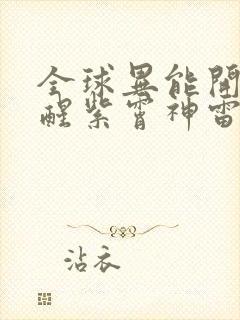 全球異能開
醒紫霄神雷
沾衣